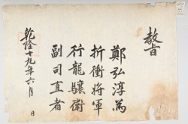 敎旨
鄭弘淳為
折衝將軍
行龍驤衛
副司直者
乾隆十九年六月　日